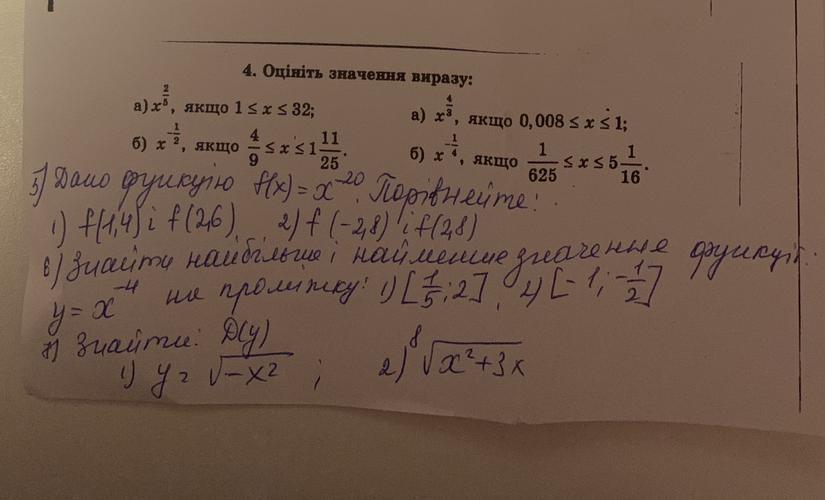 4. Оцініть значення виразу:
а) x^{2/5}, якщо 1 ≤ x ≤ 32;
а) x^{4/3}, якщо 0,008 ≤ x ≤ 1;
б) x^{-1/2}, якщо 4/9 ≤ x ≤ 1 11/25.
б) x^{-1/4}, якщо 1/625 ≤ x ≤ 5 1/16.
5) Дано функцію f(x) = x^{-20}. Порівняйте:
1) f(1,4) і f(2,6) 2) f(-2,8) і f(2,8)
6) Знайти найбільше і найменше значення функції:
y = x^{-4} на проміжку: 1) [1/5; 2], 2) [-1; -1/2]
7) Знайти: D(y)
1) y = √-x² ; 2) ⁸√x²+3x